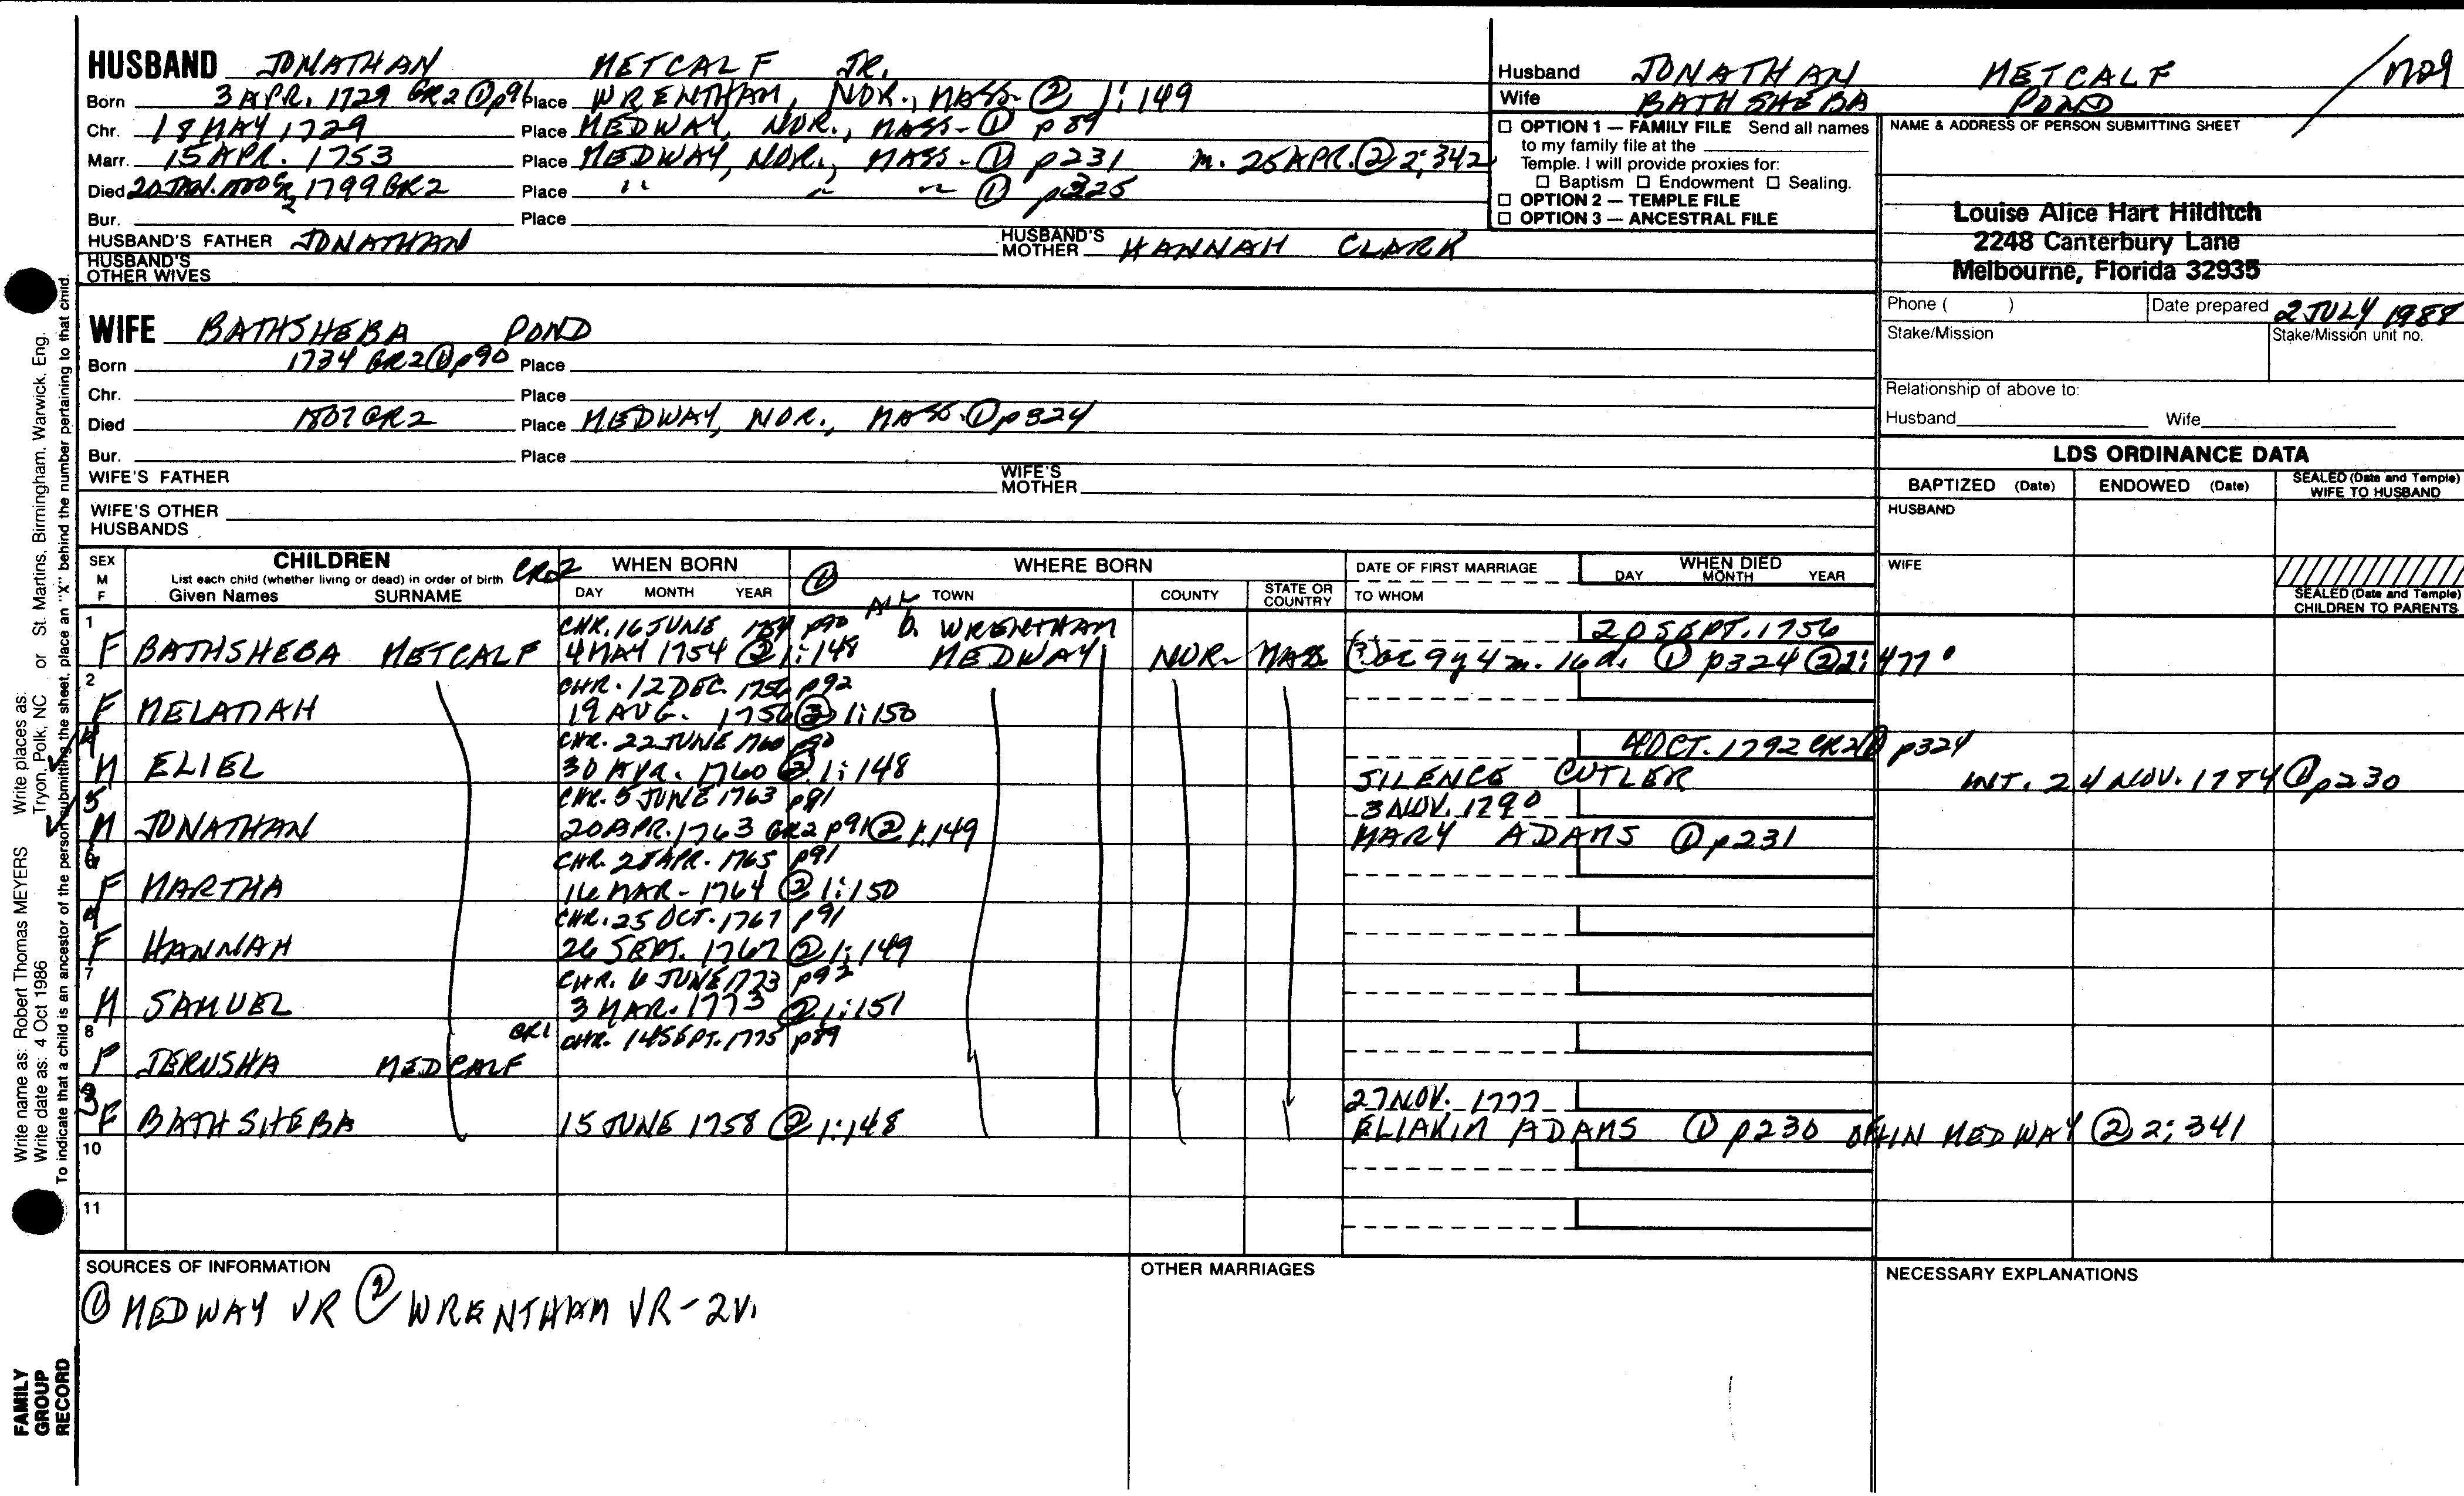 HUSBAND JONATHAN METCALF JR.
Born 3 APR. 1729 GR2 ① p91 Place WRENTHAM, NOR., MASS. ② 1:149
Chr. 18 MAY 1729 Place MEDWAY, NOR., MASS. ① p 89
Marr. 15 APR. 1753 Place MEDWAY, NOR., MASS. ① p231 m. 25 APR. ② 2:342
Died 20 JAN. 1799 GR2 Place " " " ① p325
Bur. Place
HUSBAND'S FATHER JONATHAN HUSBAND'S MOTHER HANNAH CLARK
HUSBAND'S OTHER WIVES
Husband JONATHAN METCALF / 1729
Wife BATHSHEBA POND
☐ OPTION 1 — FAMILY FILE Send all names
to my family file at the
Temple. I will provide proxies for:
☐ Baptism ☐ Endowment ☐ Sealing.
☐ OPTION 2 — TEMPLE FILE
☐ OPTION 3 — ANCESTRAL FILE
NAME & ADDRESS OF PERSON SUBMITTING SHEET
Louise Alice Hart Hilditch
2248 Canterbury Lane
Melbourne, Florida 32935
Phone ( ) Date prepared 2 JULY 1988
Stake/Mission Stake/Mission unit no.
Relationship of above to:
Husband Wife
WIFE BATHSHEBA POND
Born 1734 GR2 ① p90 Place
Chr. Place
Died 1807 GR2 Place MEDWAY, NOR., MASS. ① p324
Bur. Place
WIFE'S FATHER WIFE'S MOTHER
WIFE'S OTHER HUSBANDS
LDS ORDINANCE DATA
BAPTIZED (Date) ENDOWED (Date) SEALED (Date and Temple) WIFE TO HUSBAND
HUSBAND
WIFE
SEALED (Date and Temple) CHILDREN TO PARENTS
SEX M F
CHILDREN
List each child (whether living or dead) in order of birth
Given Names SURNAME
CR2 WHEN BORN
DAY MONTH YEAR
① WHERE BORN
ALL TOWN COUNTY STATE OR COUNTRY
DATE OF FIRST MARRIAGE
TO WHOM
WHEN DIED
DAY MONTH YEAR
1 CHR. 16 JUNE 1754 p90 b. WRENTHAM 20 SEPT. 1756
F BATHSHEBA METCALF 4 MAY 1754 ② 1:148 MEDWAY NOR. MASS ae 9y 4m. 16d. ① p324 ② 2:477
2 CHR. 12 DEC. 1756 p92
F MELATIAH 19 AUG. 1756 ② 1:150
4 CHR. 22 JUNE 1760 p90 4 OCT. 1792 GR2 ① p324
M ELIEL 30 APR. 1760 ② 1:148 SILENCE CUTLER INT. 24 NOV. 1784 ① p230
5 CHR. 5 JUNE 1763 p91 3 NOV. 1790
M JONATHAN 20 APR. 1763 GR2 p91 ② 1:149 MARY ADAMS ① p231
6 CHR. 28 APR. 1765 p91
F MARTHA 16 MAR. 1764 ② 1:150
CHR. 25 OCT. 1767 p91
F HANNAH 26 SEPT. 1767 ② 1:149
7 CHR. 6 JUNE 1773 p92
M SAMUEL 3 MAR. 1773 ② 1:151
8 CR1 CHR. 14 SEPT. 1775 p89
F JERUSHA MEDCALF
3 27 NOV. 1777
F BATHSHEBA 15 JUNE 1758 ② 1:148 ELIAKIM ADAMS ① p230 IN MEDWAY ② 2:341
10
11
SOURCES OF INFORMATION
① MEDWAY VR ② WRENTHAM VR - 2V.
OTHER MARRIAGES
NECESSARY EXPLANATIONS
Write name as: Robert Thomas MEYERS Write places as: Tryon, Polk, NC or St. Martins, Birmingham, Warwick, Eng.
Write date as: 4 Oct 1986
To indicate that a child is an ancestor of the person submitting the sheet, place an "X" behind the number pertaining to that child.
FAMILY GROUP RECORD